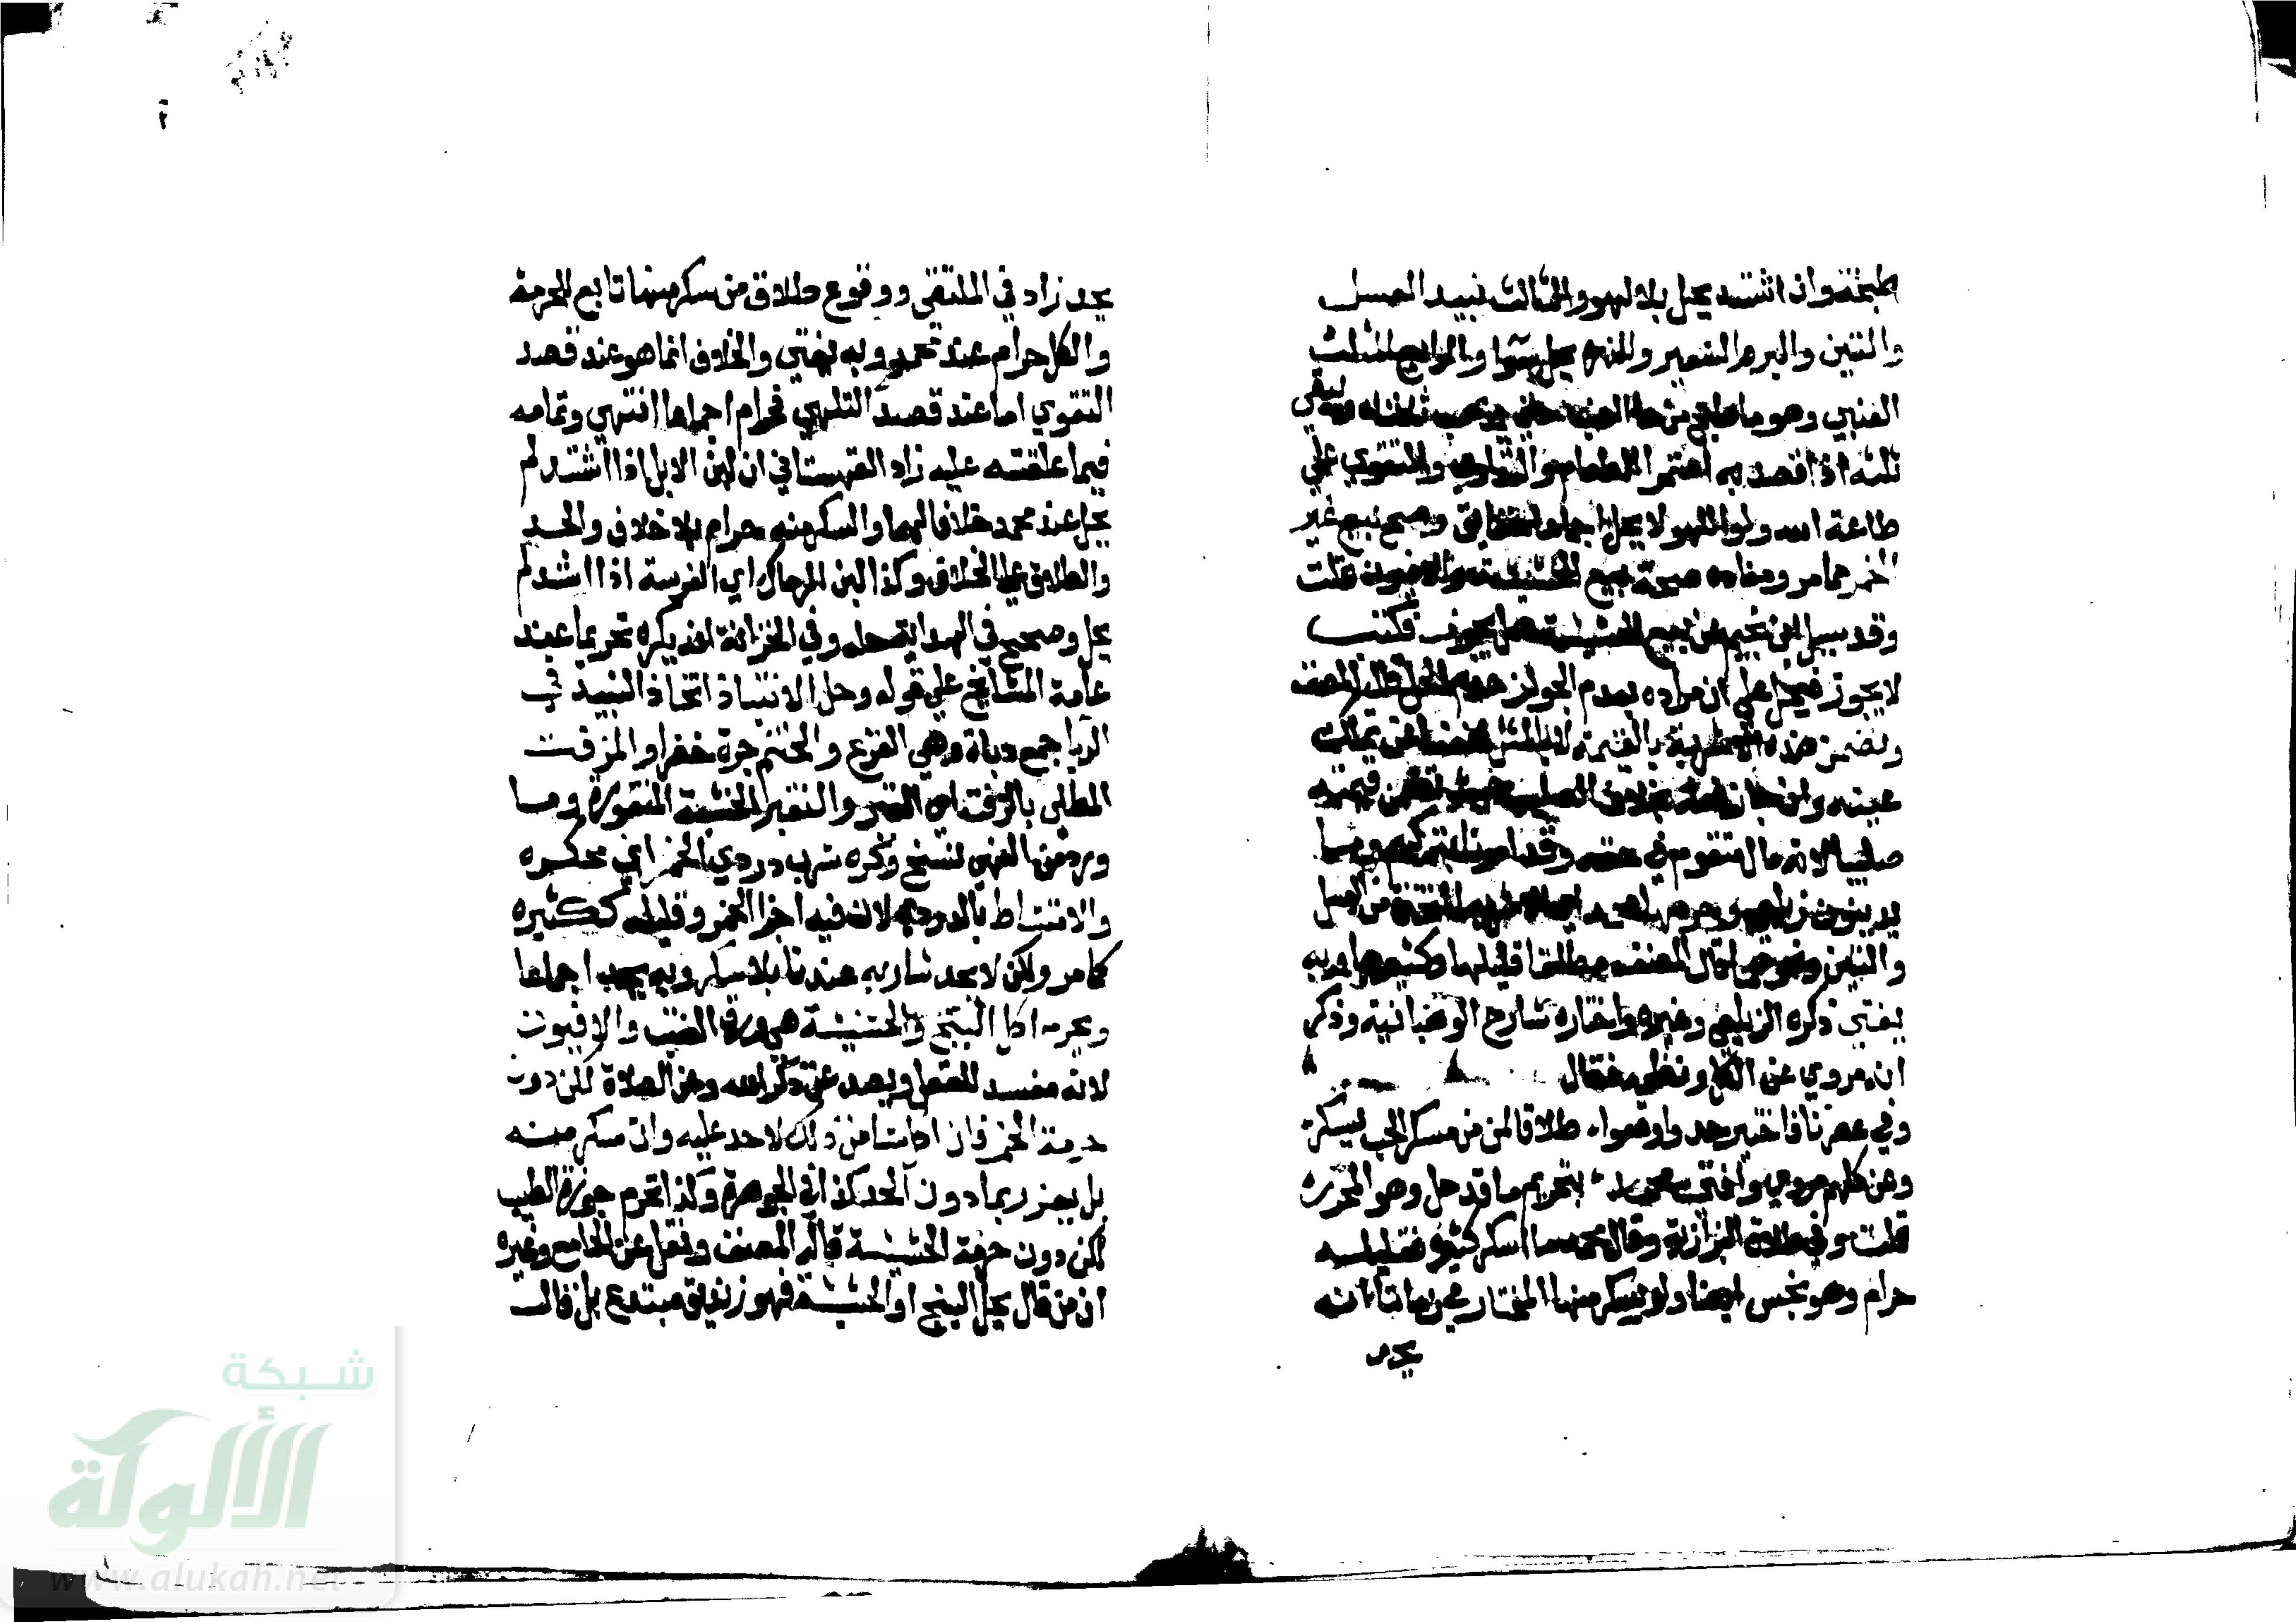 طبخة وان اشتد يحل بلا لهو والثالث نبيذ العسل
والتين والبر والشعير والذرة يحل سوا والرابع المثلث
العنبي وهو ما طبخ من ماء العنب حتى يذهب ثلثاه ويبقى
ثلثه اذا قصد به استمرا الطعام والتداوي والتقوي على
طاعة الله ولو للهو لا يحل اجماعا حقايق وصح بيع غير
الخمر مما مر ومفاده صحة بيع الحشيشة والافيون قلت
وقد سيل ابن نجيم عن بيع الحشيشة هل يجوز فكتب
لا يجوز فيحمل على ان مراده بعدم الجواز عدم الحل قاله المصنف
وتضمن هذه الاشربة بالقيمة لا بالمثل لمنعنا عن تملك
عينه وان جاز فعله بخلاف الصليب حيث تضمن قيمته
صليبا لانه مال متقوم في حقه وقد امرنا بتركهم وما
يدينون زيلعي وحرمها محمد اي الاشربة المتخذة من العسل
والتين ونحوهما قاله المصنف مطلقا قليلها وكثيرها وبه
يفتى ذكره الزيلعي وغيره واختاره شارح الوهبانية وذكر
انه مروي عن الكل ونظمه فقال
وفي عصرنا فاختير حد واوقعوا، طلاقا لمن من مسكر الحب يسكر،
وعن كلهم مروي وافتى محمد، بتحريم ما قد حل وهو المحرر،
قلت وفي طلاق البزازية وقال محمد ما اسكر كثيره فقليله
حرام وهو نجس ايضا ولو سكر منها المختار في زماننا انه
يحد
يحد زاد في الملتقى ووقوع طلاق من سكر منها تابع للحرمة
والكل حرام عند محمد وبه يفتى والخلاف انما هو عند قصد
التقوي اما عند قصد التلهي فحرام اجماعا انتهى وتمامه
فيما علقته عليه زاد القهستاني ان لبن الابل اذا اشتد لم
يحل عند محمد خلافا لهما والسكر منه حرام بلا خلاف والحد
والطلاق على الخلاف وكذا لبن الرماك اي الفرسة اذا اشتد لم
يحل وصحح في الهداية حله وفي الخزانة انه يكره تحريما عند
عامة المشايخ على قوله وحل الانتباذ اتخاذ النبيذ في
الدبا جمع دباة وهي القرع والحنتم جرة خضرا والمزفت
المطلي بالزفت اي القير والنقير الخشبة المنقورة وما
ورد من النهي نسخ وكره شرب دردي الخمر اي عكره
والامتشاط بالدردي لان فيه اجزا الخمر وقليله ككثيره
كما مر ولكن لا يحد شاربه عندنا بلا سكر وبه يحد اجماعا
ويحرم اكل البنج والحشيشة هي ورق القنب والافيون
لانه مفسد للعقل ويصد عن ذكر الله وعن الصلاة لكن دون
حرمة الخمر فان اكل شيا من ذلك لا حد عليه وان سكر منه
بل يعزر بما دون الحد كذا في الجوهرة وكذا تحرم جوزة الطيب
لكن دون حرمة الحشيشة قاله المصنف ونقل عن الجامع وغيره
ان من قال بحل البنج او الحشيشة فهو زنديق مبتدع بل قال
شبكة
الألوكة
www.alukah.net